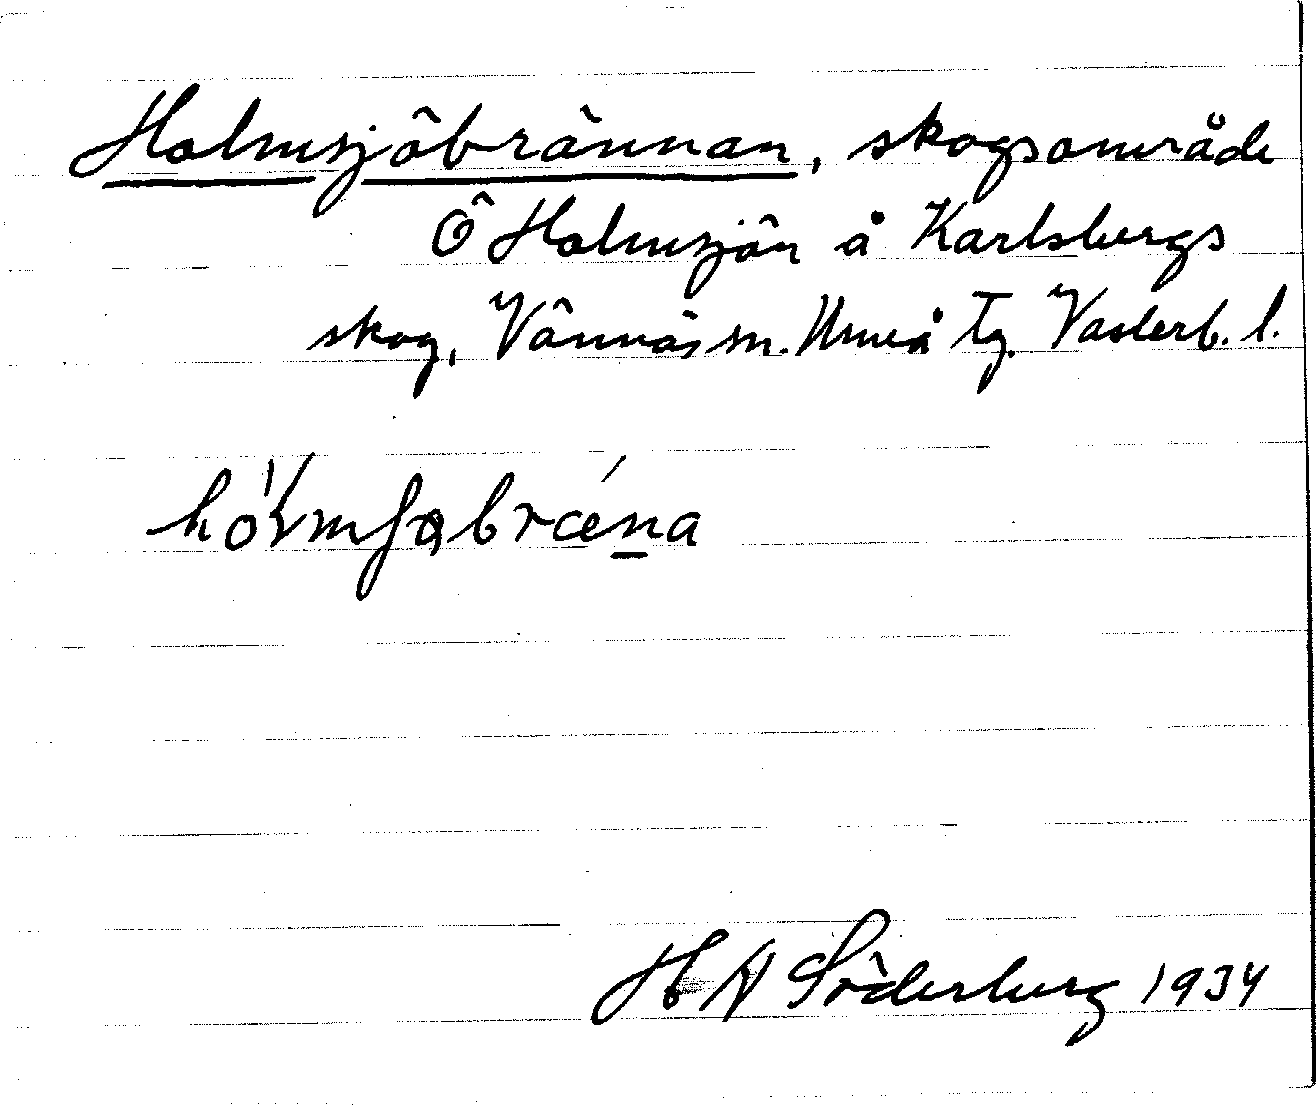 Holmsjöbrännan, skogsområde
Ö Holmsjön å Karlsbergs
skog, Vännäs sn. Umeå Tg. Västerb. l.
H N Söderberg 1934